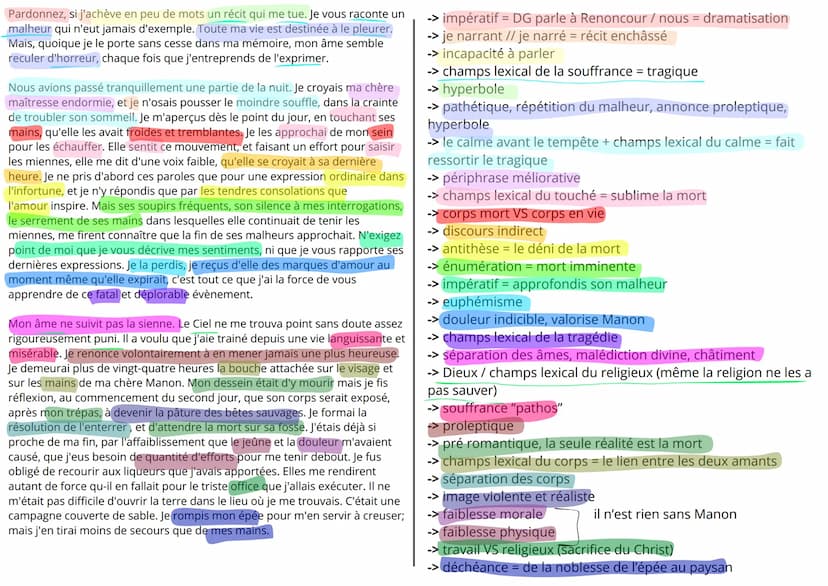 Pardonnez, si j'achève en peu de mots un récit qui me tue. Je vous raconte un
malheur qui n'eut jamais d'exemple. Toute ma vie est destinée à le pleurer.
Mais, quoique je le porte sans cesse dans ma mémoire, mon âme semble
reculer d'horreur, chaque fois que j'entreprends de l'exprimer.
Nous avions passé tranquillement une partie de la nuit. Je croyais ma chère
maîtresse endormie, et je n'osais pousser le moindre souffle, dans la crainte
de troubler son sommeil. Je m'aperçus dès le point du jour, en touchant ses
mains, qu'elle les avait froides et tremblantes. Je les approchai de mon sein
pour les échauffer. Elle sentit ce mouvement, et faisant un effort pour saisir
les miennes, elle me dit d'une voix faible, qu'elle se croyait à sa dernière
heure. Je ne pris d'abord ces paroles que pour une expression ordinaire dans
l'infortune, et je n'y répondis que par les tendres consolations que
l'amour inspire. Mais ses soupirs fréquents, son silence à mes interrogations,
le serrement de ses mains dans lesquelles elle continuait de tenir les
miennes, me firent connaître que la fin de ses malheurs approchait. N'exigez
point de moi que je vous décrive mes sentiments, ni que je vous rapporte ses
dernières expressions. Je la perdis, je reçus d'elle des marques d'amour au
moment même qu'elle expirait, c'est tout ce que j'ai la force de vous
apprendre de ce fatal et déplorable évènement.
Mon âme ne suivit pas la sienne. Le Ciel ne me trouva point sans doute assez
rigoureusement puni. Il a voulu que j'aie trainé depuis une vie languissante et
misérable. Je renonce volontairement à en mener jamais une plus heureuse.
Je demeurai plus de vingt-quatre heures la bouche attachée sur le visage et
sur les mains de ma chère Manon. Mon dessein était d'y mourir mais je fis
réflexion, au commencement du second jour, que son corps serait exposé,
après mon trépas, à devenir la pâture des bêtes sauvages. Je formai la
résolution de l'enterrer, et d'attendre la mort sur sa fosse. J'étais déjà si
proche de ma fin, par l'affaiblissement que le jeûne et la douleur m'avaient
causé, que j'eus besoin de quantité d'efforts pour me tenir debout. Je fus
obligé de recourir aux liqueurs que j'avais apportées. Elles me rendirent
autant de force qu-il en fallait pour le triste office que j'allais exécuter. Il ne
m'était pas difficile d'ouvrir la terre dans le lieu où je me trouvais. C'était une
campagne couverte de sable. Je rompis mon épée pour m'en servir à creuser;
mais j'en tirai moins de secours que de mes mains.
-> impératif = DG parle à Renoncour / nous = dramatisation
-> je narrant // je narré = récit enchâssé
-> incapacité à parler
-> champs lexical de la souffrance = tragique
-> hyperbole
-> pathétique, répétition du malheur, annonce proleptique,
hyperbole
-> le calme avant le tempête + champs lexical du calme = fait
ressortir le tragique
-> périphrase méliorative
-> champs lexical du touché = sublime la mort
-> corps mort VS corps en vie
-> discours indirect
-> antithèse = le déni de la mort
-> énumération = mort imminente
-> impératif = approfondis son malheur
-> euphémisme
-> douleur indicible, valorise Manon
-> champs lexical de la tragédie
-> séparation des âmes, malédiction divine, châtiment
-> Dieux / champs lexical du religieux (même la religion ne les a
pas sauver)
-> souffrance "pathos"
-> proleptique
-> pré romantique, la seule réalité est la mort
-> champs lexical du corps = le lien entre les deux amants
-> séparation des corps
-> image violente et réaliste
-> faiblesse morale
il n'est rien sans Manon
-> faiblesse physique
-> travail VS religieux (sacrifice du Christ)
-> déchéance = de la noblesse de l'épée au paysan